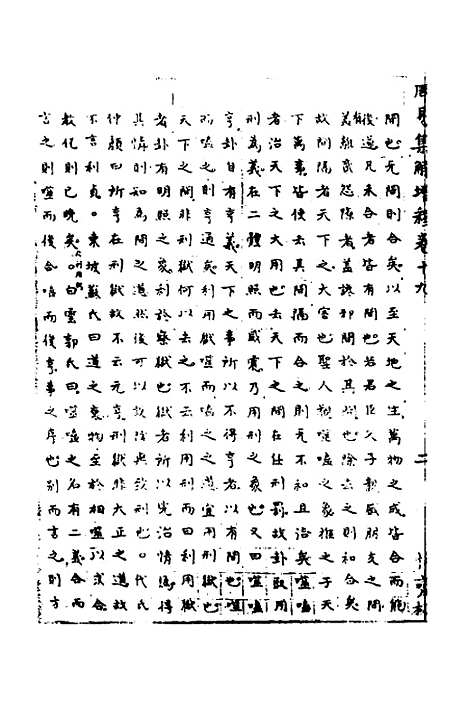 周易集解增釋卷十九
間也无間則合矣以至天地之生萬物之成皆合而能
後遂凡未合者皆有間也若君臣父子親戚朋友之間
有離貳怨隙者蓋讒邪間於其間也除去之則和合矣
故間隔者天下之大害也聖人觀噬嗑之象推之于天
下萬事皆使去其間隔而合之則无不和且洽矣噬嗑
者治天下之大用也去天下之間在任刑罰故卦取用
刑為義在二體明照而威震乃用刑之象也又曰噬嗑
亨卦自有亨義天下之事所以不得亨者以有間也噬
而嗑之則亨通矣利用獄噬而嗑之之道宜用刑獄也
天下之間非刑獄何以去之不云利用刑而云利用獄
者卦有明照之象利於察獄也獄者所以究治情偽得
其情則知為間之道然後可以設防與致刑也代氏
仲顏曰所亨在刑獄故不云元亨刑獄非大正之道故
不言利貞東坡蘇氏曰道之衰物至於相噬以求合
教化則已晚矣白雲郭氏曰噬嗑之名有二義合而
言之則噬而後合嗑而後亨事之序也別而言之則方
二